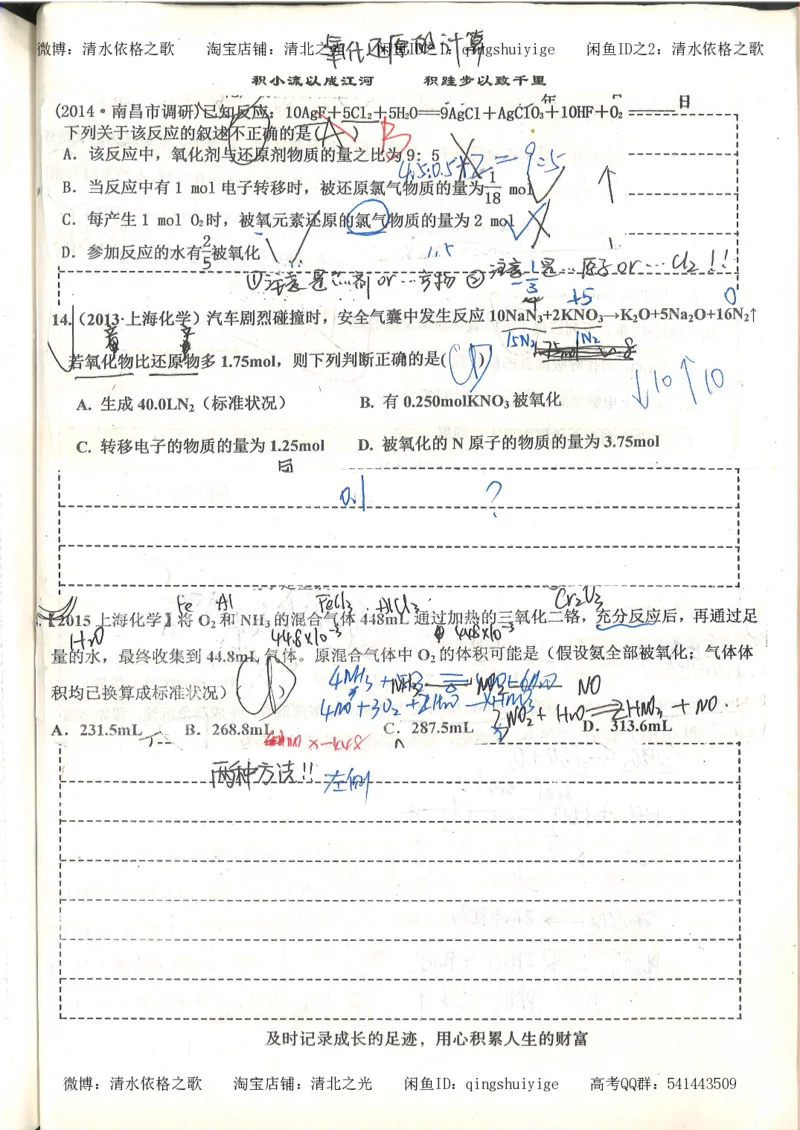 微博：清水依格之歌 淘宝店铺：清北之 闲鱼ID之1：qingshuiyige 闲鱼ID之2：清水依格之歌
氧化还原的计算
积小流以成江河 积跬步以致千里
年 日
(2014·南昌市调研)已知反应：10AgF＋5Cl₂＋5H₂O══9AgCl＋AgClO₃＋10HF＋O₂
下列关于该反应的叙述不正确的是(A) B
A．该反应中，氧化剂与还原剂物质的量之比为9：5
4.5:0.5+2=9:5
B．当反应中有 1 mol 电子转移时，被还原氯气物质的量为1/18 mol
C．每产生 1 mol O₂时，被氧元素还原的氯气物质的量为 2 mol
D．参加反应的水有2/5被氧化
1:1.5
①注意是 剂or…产物 ②注意是…原子or…Cl₂!!
-1/3 +5 0
14.（2013·上海化学）汽车剧烈碰撞时，安全气囊中发生反应 10NaN₃+2KNO₃→K₂O+5Na₂O+16N₂↑
15N₂ 1N₂
若氧化物比还原物多 1.75mol，则下列判断正确的是( D )
↓10 ↑10
A. 生成 40.0LN₂（标准状况） B. 有 0.250molKNO₃被氧化
C. 转移电子的物质的量为 1.25mol D. 被氧化的 N 原子的物质的量为 3.75mol
?
Fe Al FeCl₃ AlCl₃ Cr₂O₃
【2015 上海化学】将 O₂ 和 NH₃ 的混合气体 448mL 通过加热的三氧化二铬，充分反应后，再通过足
H₂O 44.8×10⁻³ 448×10⁻³
量的水，最终收集到 44.8mL 气体。原混合气体中 O₂ 的体积可能是（假设氨全部被氧化；气体体
NO
积均已换算成标准状况）( D )
4NO+3O₂+2H₂O→4HNO₃
3NO₂+H₂O══2HNO₃+NO.
A．231.5mL B．268.8mL C．287.5mL D．313.6mL
两种方法!! 左侧
及时记录成长的足迹，用心积累人生的财富
微博：清水依格之歌 淘宝店铺：清北之光 闲鱼ID：qingshuiyige 高考QQ群：541443509